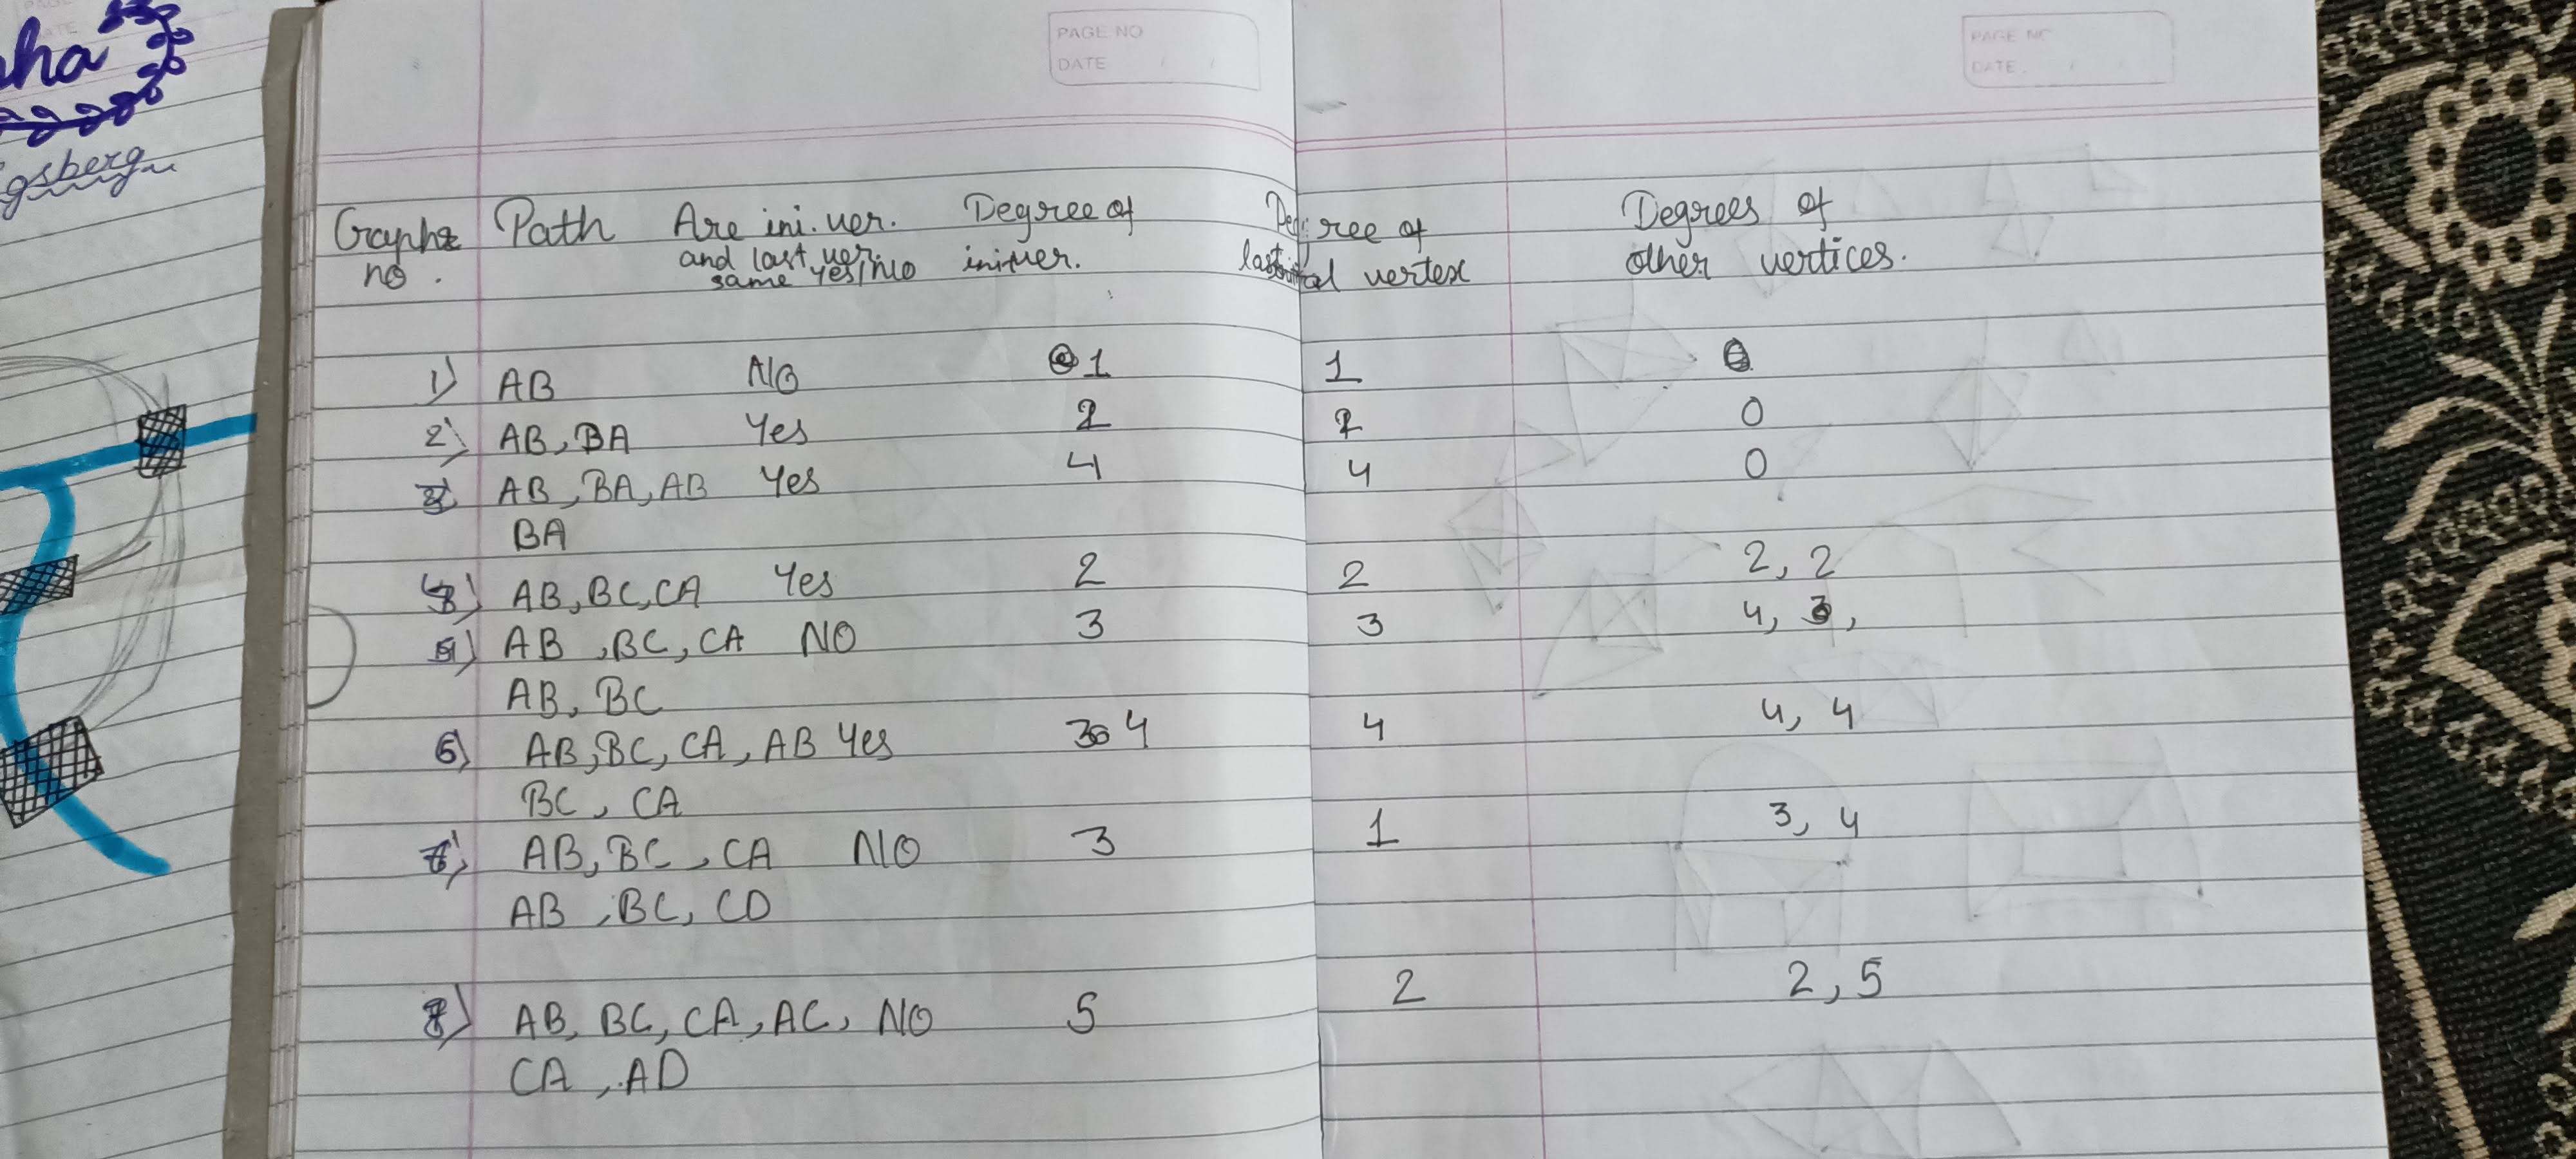 PAGE NO
DATE / /
PAGE NO
DATE /
gsberg
Graph Path Are ini. ver. Degree of Degree of Degrees of
no. and last ver. ini. ver. vertex other vertices.
same Yes/No
1) AB NO 1 1 0
2) AB, BA Yes 2 2 0
3) AB, BA, AB Yes 4 4 0
BA
4) AB, BC, CA Yes 2 2 2, 2
5) AB, BC, CA NO 3 3 4, 3,
AB, BC
6) AB, BC, CA, AB Yes 4 4 4, 4
BC, CA
7) AB, BC, CA NO 3 1 3, 4
AB, BC, CD
8) AB, BC, CA, AC, NO 5 2 2, 5
CA, AD